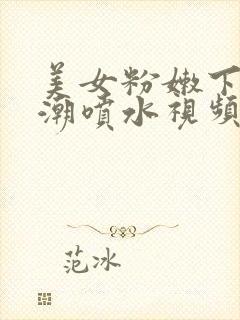 美女粉嫩下
潮噴水視頻
范冰